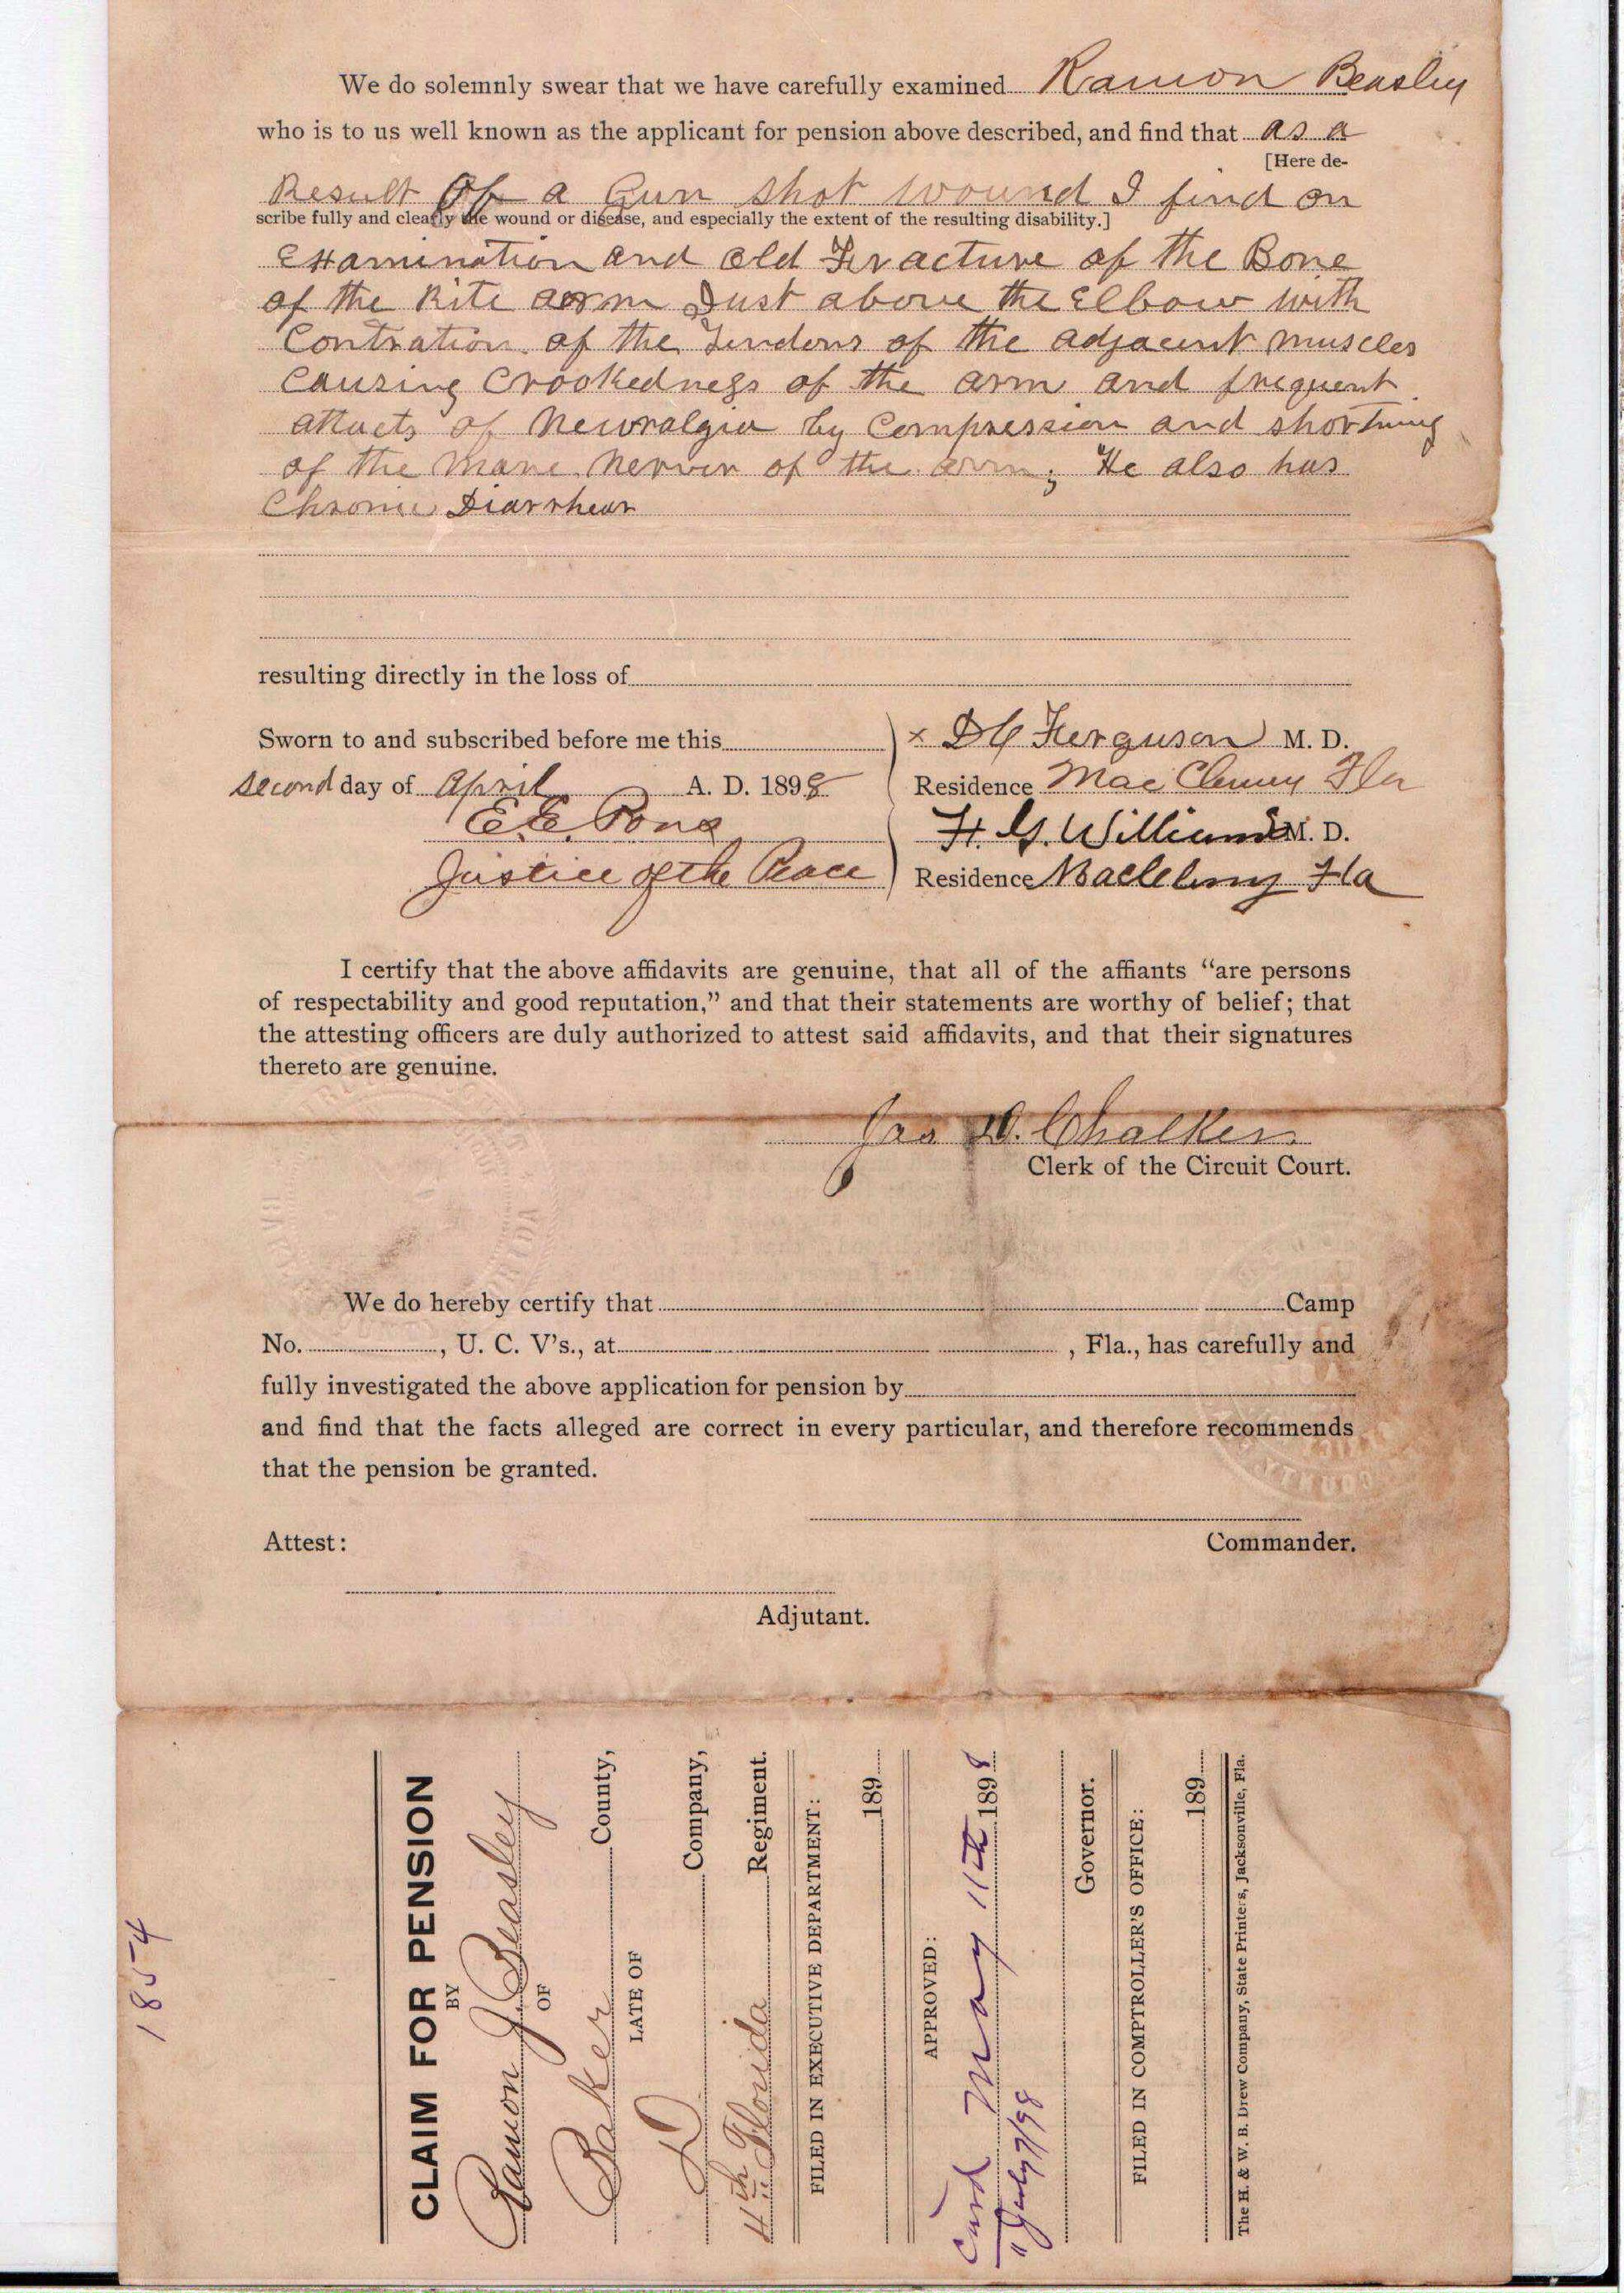 We do solemnly swear that we have carefully examined Ramon Beasley
who is to us well known as the applicant for pension above described, and find that as a
[Here de-
Result Of a Gun shot wound I find on
scribe fully and clearly the wound or disease, and especially the extent of the resulting disability.]
Examination and old Fracture of the Bone
of the Rite arm Just above the Elbow with
Contration of the Tendons of the adjacent muscles
Causing Crookedness of the arm and frequent
attacts of Neuralgia by Compression and shortning
of the mane Nerves of the arm; He also has
Chronic Diarrhear
resulting directly in the loss of
Sworn to and subscribed before me this
second day of April A. D. 1898
E.E. Pons
Justice of the Peace
x Ferguson M. D.
Residence Mac Clenny Fla
H. G. Williams M. D.
Residence Macclenny Fla
I certify that the above affidavits are genuine, that all of the affiants “are persons
of respectability and good reputation,” and that their statements are worthy of belief; that
the attesting officers are duly authorized to attest said affidavits, and that their signatures
thereto are genuine.
Jas D. Chalker
Clerk of the Circuit Court.
We do hereby certify that Camp
No. , U. C. V's., at , Fla., has carefully and
fully investigated the above application for pension by
and find that the facts alleged are correct in every particular, and therefore recommends
that the pension be granted.
Commander.
Attest:
Adjutant.
1854
CLAIM FOR PENSION
BY
Ramon J. Beasley
OF
Baker County,
LATE OF
D Company,
4th Florida Regiment.
FILED IN EXECUTIVE DEPARTMENT:
189
APPROVED:
Card May 11th 1898
" July 7/98
Governor.
FILED IN COMPTROLLER'S OFFICE:
189
The H. & W. B. Drew Company, State Printers, Jacksonville, Fla.